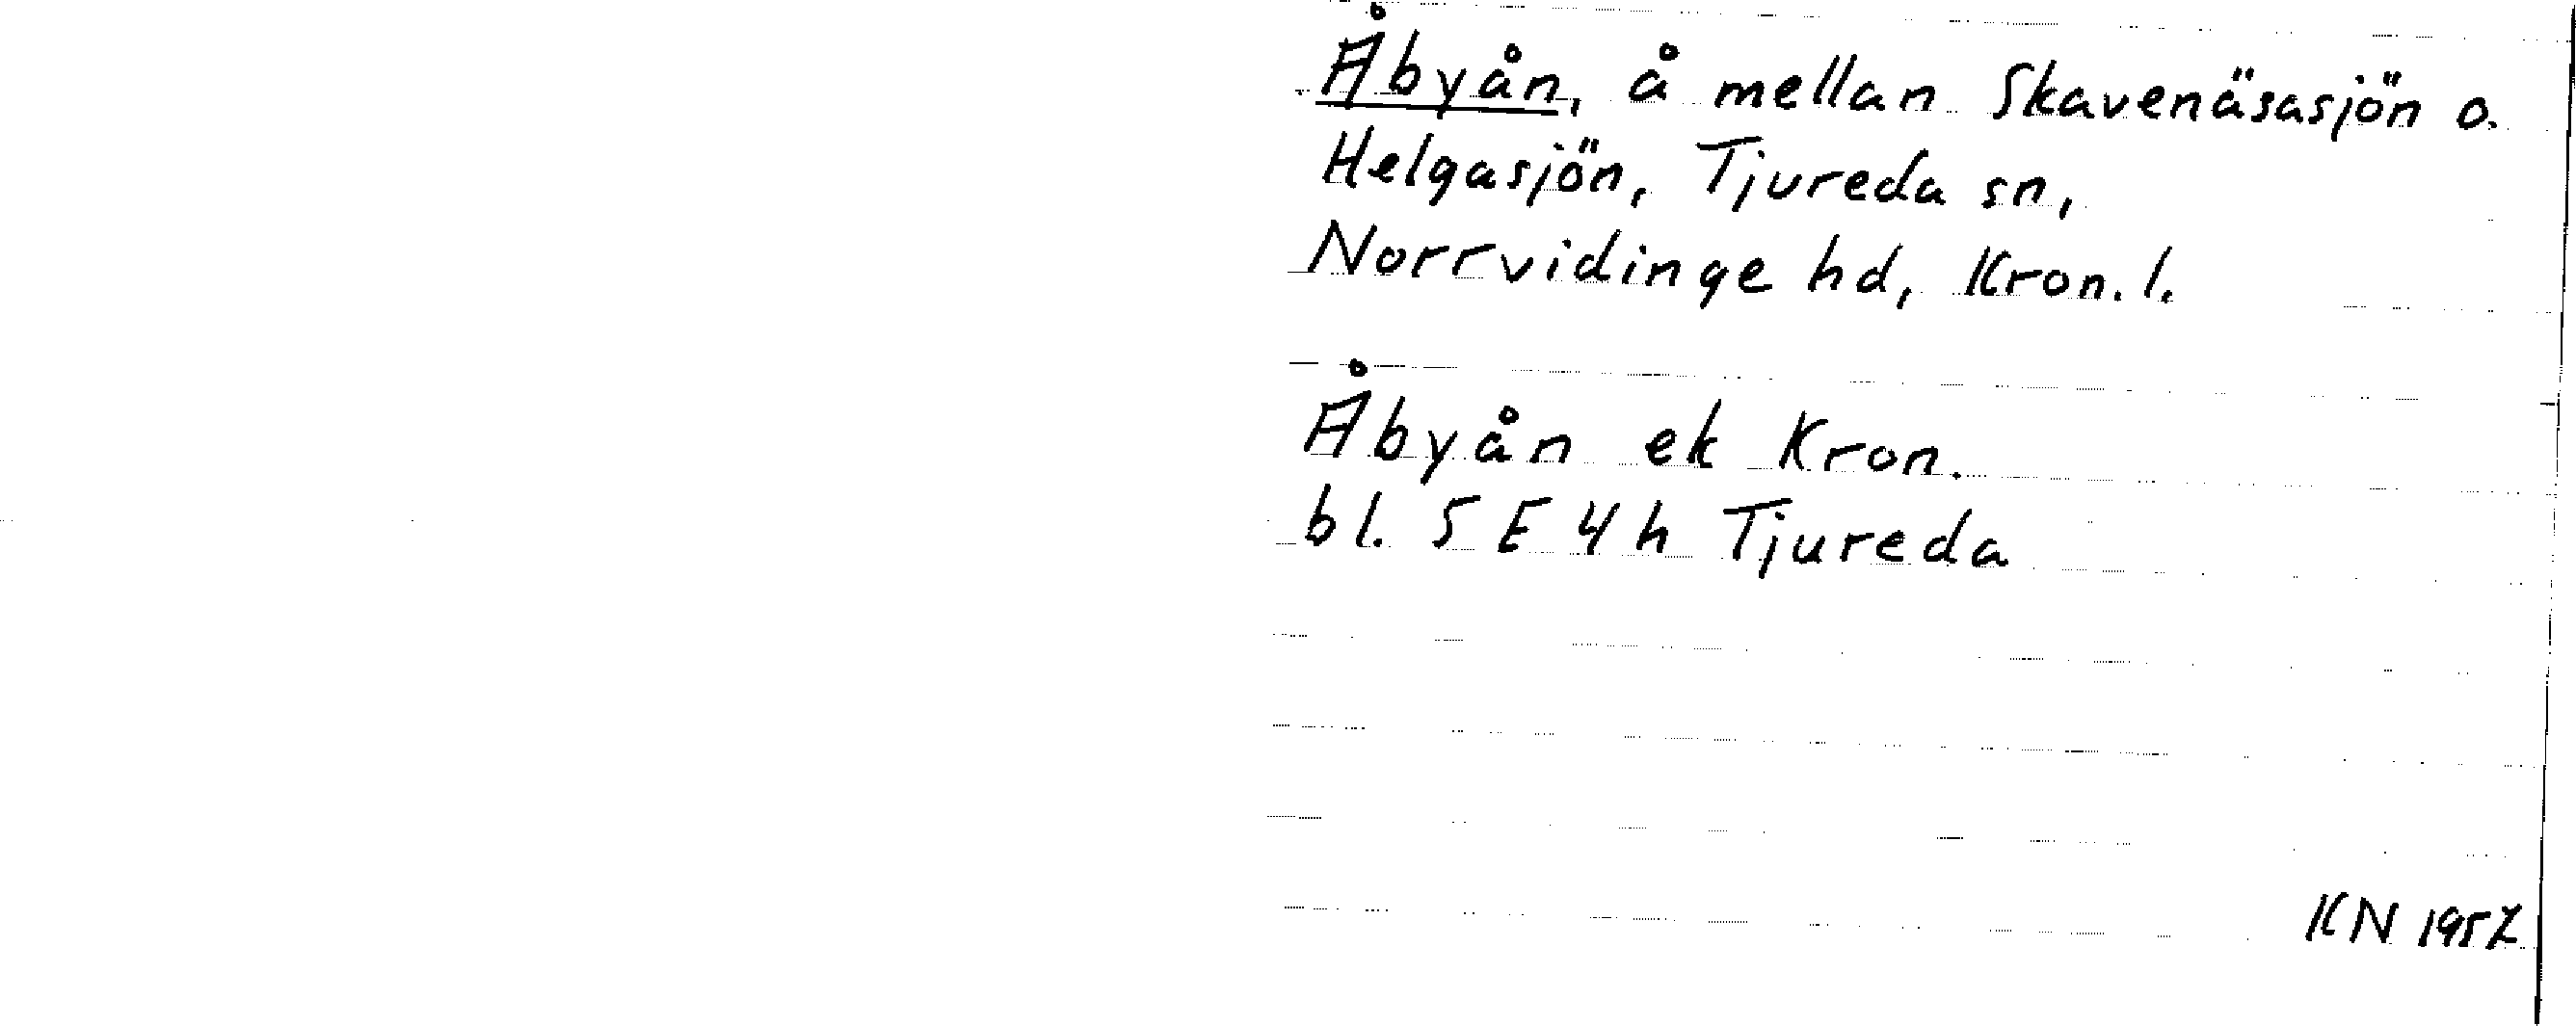 Åbyån, å mellan Skavenäsasjön o.
Helgasjön, Tjureda sn,
Norrvidinge hd, Kron. l.
Åbyån ek Kron.
bl. 5 E 4 h Tjureda
KN 1957